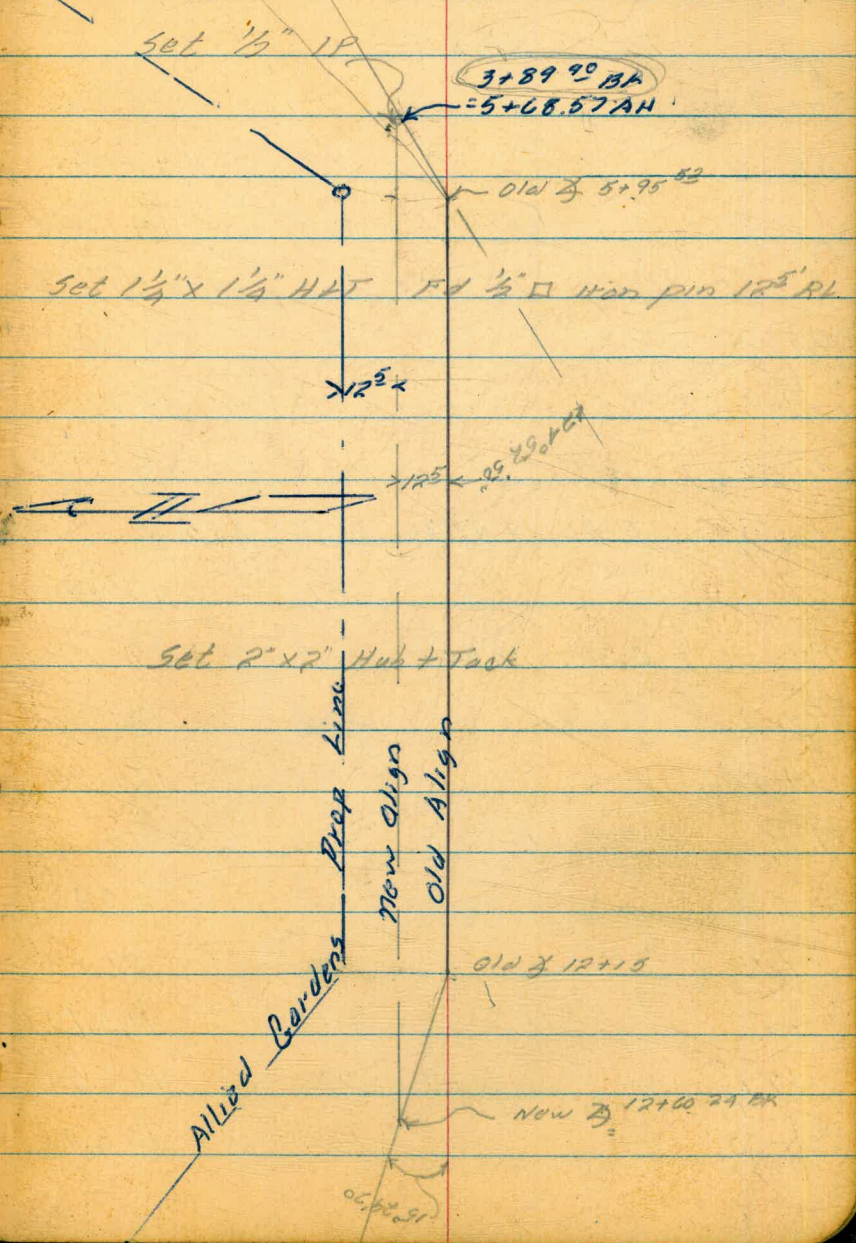 Set 1/2" IP
3+89 90 BK
=5+68.57 AH
Old ∡ 5+95 52
Set 1 1/4" x 1 1/4" H&T
Fd 1/2" □ iron pin 12 5' Rt.
12 5
12 5
Set 2" x 2" Hub & Tack
Allied Gardens Prop Line
New Align
Old Align
Old ∡ 12+15
New ∡ 12+60 24 BK
=